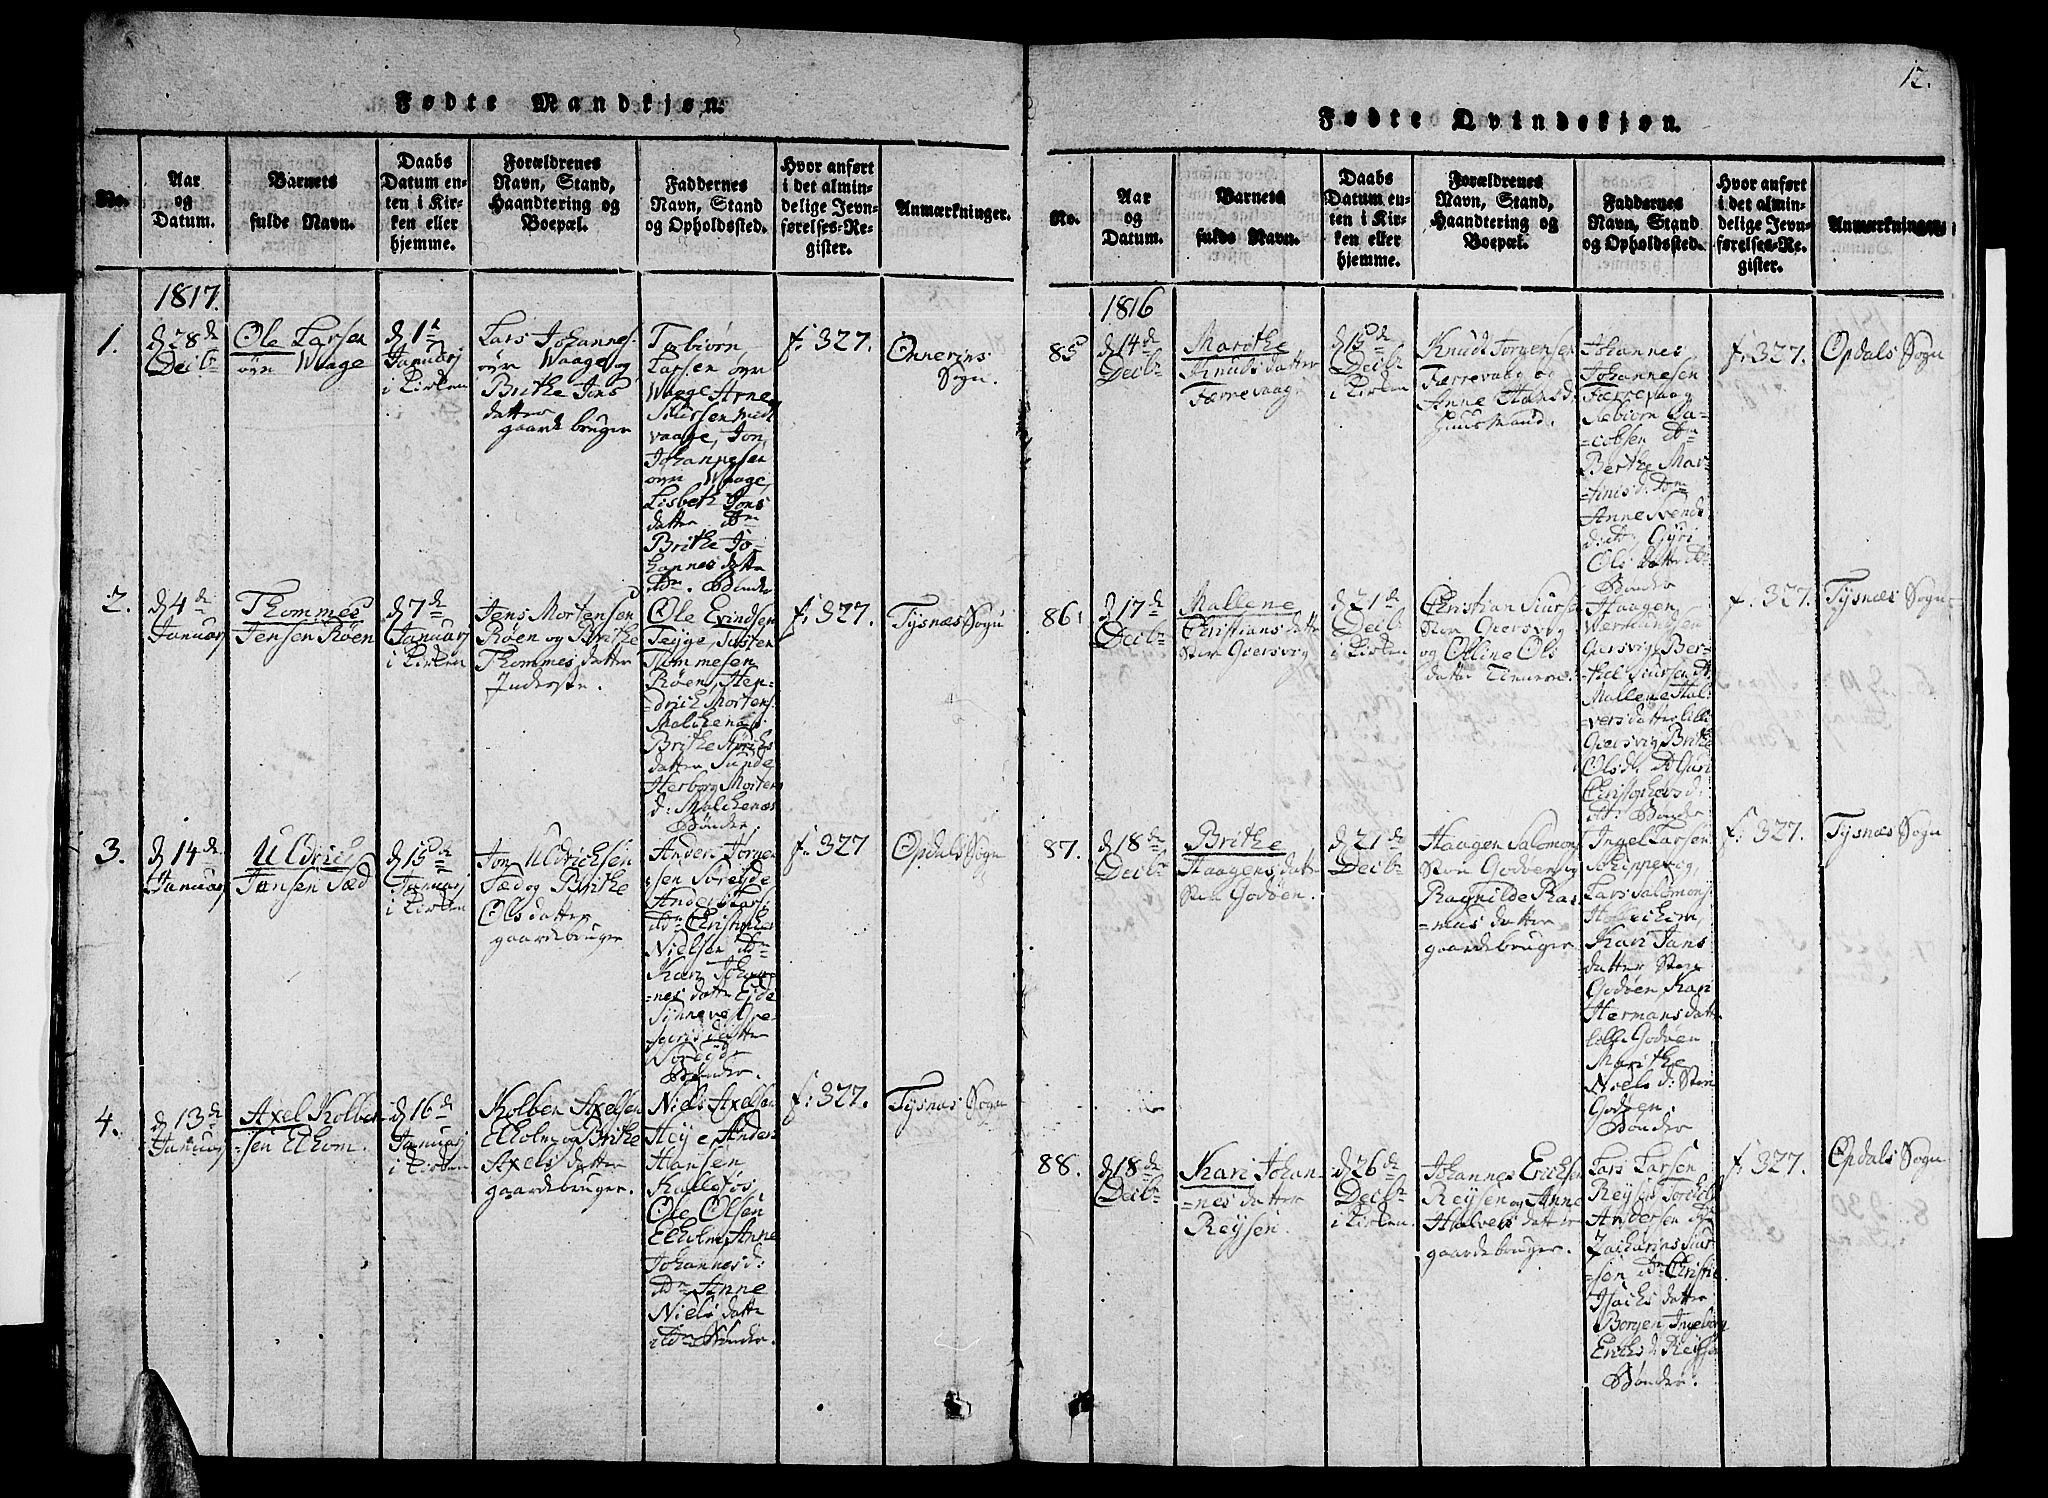 12.
Fødte Mandkjøn.
No.
Aar
og
Datum.
Barnets
fulde Navn.
Daabs
Datum en-
ten i Kir-
ken eller
hjemme.
Forældrenes
Navn, Stand,
Haandtering og
Boepæl.
Faddernes
Navn, Stand
og Opholdssted.
Hvor anført
i det almin-
delige Jevn-
førelses-Re-
gister.
Anmærkninger.
1817.
1.
d 28de
Decbr
Ole Larsen
øvr Waage
d 1st
Januarj
i Kirken
Lars Johannes:
øvr Waage og
Brithe Jons
datter
gaardbruger
Torbiørn
Larsen øvr
Waage, Arne
Siursen
vaage, Jon
Johannesen
øvr Waage,
Lisbeth Jons
datter
Brithe Jo-
hannesdatter
Bønder
f. 327.
Onnerims
Sogn.
2.
d 4de
Januarj
Thommes
Jensen Røen
d 7de
Januarj
i Kirken
Jens Mortensen
Røen og Brithe
Thommes datter
Inderste.
Ole Evindsen
Teyge,
Thommesen
Røen, Hen-
drich Mortens:
Malchenæs
Brithe
datter Sunde
Herborg Mortens
d: Malchenæs
Bønder.
f. 327.
Tysnæs Sogn
3.
d 14de
Januarj
Uldrich
Jonsen Sæd
d 15de
Januarj
i Kirken
Jon Uldrichsen
Sæd og Brithe
Ols datter
gaardebruger
Anders Jørgen
sen Soreyde
Anders Lars:
do Christopher
Nielsen do
Kari Johan-
nes datter Eide
Synneve Gre-
gorisdatter
Soreyde
Bønder.
f. 327
Opdals Sogn
4.
d 13de
Januarj
Axel Kolben-
sen Elholm.
d 16de
Januarj
i Kirken
Kolben Axelsen
Elholm og Brithe
Axels datter
gaardebruger.
Niels Axelsen
Heye Anders
Hansen
Ole Olsen
Elholm, Anne
Johannes d:
do Anne
Niels datter
do Bønder.
f. 327.
Tysnæs Sogn
Fødte Qvindekjøn.
No.
Aar
og
Datum.
Barnets
fulde Navn.
Daabs
Datum en-
ten i Kir-
ken eller
hjemme.
Forældrenes
Navn, Stand,
Haandtering og
Boepæl.
Faddernes
Navn, Stand
og Opholdssted.
Hvor anført
i det almin-
delige Jevn-
førelses-Re-
gister.
Anmærkninger.
1816
85
d 14de
Decbr
Marthe
Knuds datter
Færrevaag
d 15de
Decbr
i Kirken
Knud Jørgensen
Færrevaag og
Anne Hans d:
Huusmand.
Johannes
Johannesen
Færrevaag
Sæbiørn Ja-
cobsen do
Berthe Mar-
tinis d. do
Anne Svends
d: do, Gyri
Ols datter do
Bønder
f. 327.
Opdals Sogn
86.
d 17de
Decbr
Mallene
Christians datter
Stor Giersvig
d 21de
Decbr
i Kirken
Christian Siursen
Stor Giersvig
og Olline Ols
datter
Haagen
Wermundsen
Giersvig, Ber-
thel Siursen do
Mallene Hal-
vers datter Lille
Giersvig, Brithe
Ols d. do Guri
Christophers d:
do: Bønder
f. 327.
Tysnæs Sogn
87.
d 18de
Decbr
Brithe
Haagens datter
Stor Godøen.
d 21de
Decbr
Haagen Salomons:
Stor Godøen og
Ragnilde Ras-
mus datter
gaardebruger
Ingel Larsen
Lars Salomons:
Kari Jans
datter Stor
Godøen Kari
Hermans datter
Lille Godøen
Marithe
Niels d: Stor
Godøen.
Bønder
f. 327.
Tysnæs Sogn
88.
d 18de
Decbr
Kari Johan-
nes datter
Reysen
d 26de
Decbr
i Kirken.
Johannes Erichsen
Reysen og Anne
Halvers datter
gaardebruger.
Lars Larsen
Reysen Torchel
Andersen do
Zacharias Siur-
sen do Christie
Isachs datter
Borgen Ingeborg
Erichs d: Reysen
Bønder.
f. 327.
Opdals Sogn